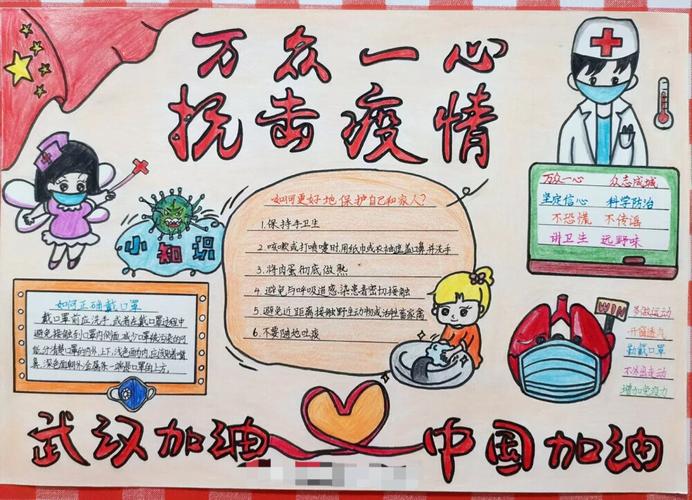 万众一心
抗击疫情
万众一心 众志成城
坚定信心 科学防治
不恐慌 不传谣
讲卫生 远野味
小知识
如何更好地保护自己和家人?
1.保持手卫生
2.咳嗽或打喷嚏时用纸巾或衣袖遮盖口鼻并洗手
3.将肉蛋彻底做熟
4.避免与呼吸道感染患者密切接触
5.避免近距离接触野生动物或活牲畜家禽
6.不要随地吐痰
如何正确戴口罩
戴口罩前应洗手或者在戴口罩过程中
避免接触到口罩内侧面,减少口罩被污染的可
能,分清楚口罩的内外、上下,浅色面为内,应该贴着嘴
鼻,深色面朝外,金属条一端是口罩的上方。
WIN
多做运动
开窗通风
勤戴口罩
增加免疫力
武汉加油
中国加油